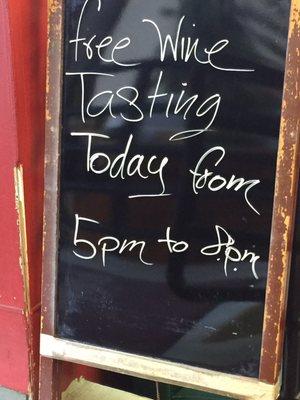 free Wine
Tasting
Today from
5pm to 8p.m